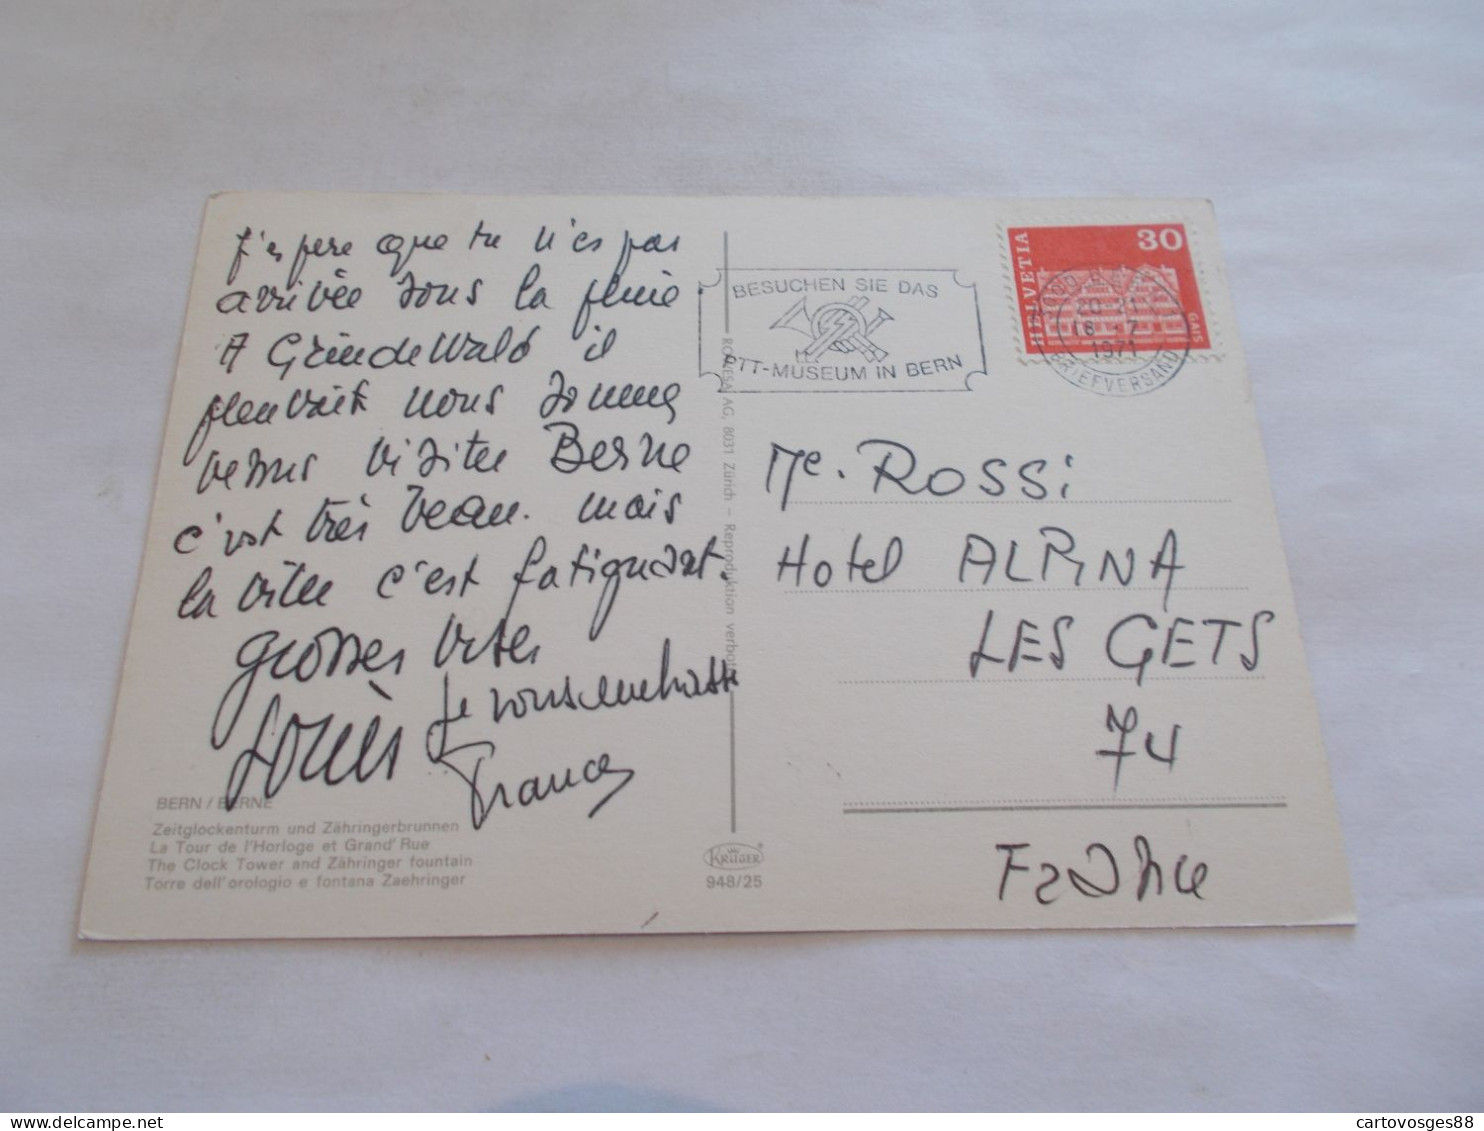 j'espere que tu n'es pas
arrivée sous la pluie.
A GrindeWald il
pleuvait nous sommes
venus visiter Berne
c'est très beau. mais
la ville c'est fatiguant.
Grosses bises
Louis
je vous embrasse
BERN / BERNE
Zeitglockenturm und Zähringerbrunnen
La Tour de l'Horloge et Grand' Rue
The Clock Tower and Zähringer fountain
Torre dell'orologio e fontana Zaehringer
AG, 8031 Zürich – Reproduktion verboten
KRÜGER
948/25
BESUCHEN SIE DAS
PTT-MUSEUM IN BERN
HELVETIA
30
GAIS
20-21
18 -7
1971
BRIEFVERSAND
Me. ROSSi
Hotel ALPINA
LES GETS
74
France
cartovosges88